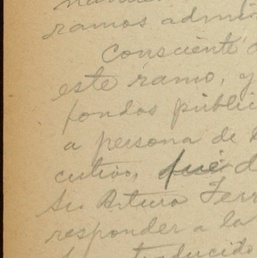 ramos admi
Consciente
este ramo, y
fondos públic
a persona de
cutivo, fué d
Sr. Arturo Ferr
responder a la
traducido